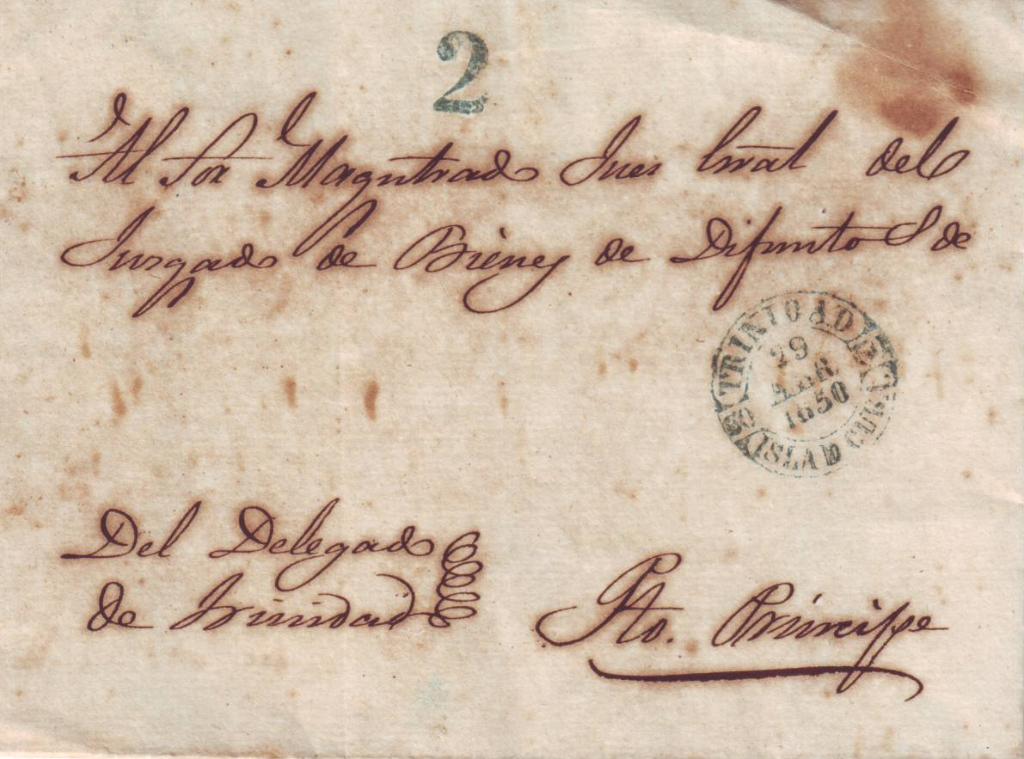 2
Al Sor Magistrado Jues Gral del
Juzgado de Bienes de Difuntos de
TRINIDAD
29
ABR
1850
ISLA D CUBA
Del Delegado
de Trinidad
Pto. Principe